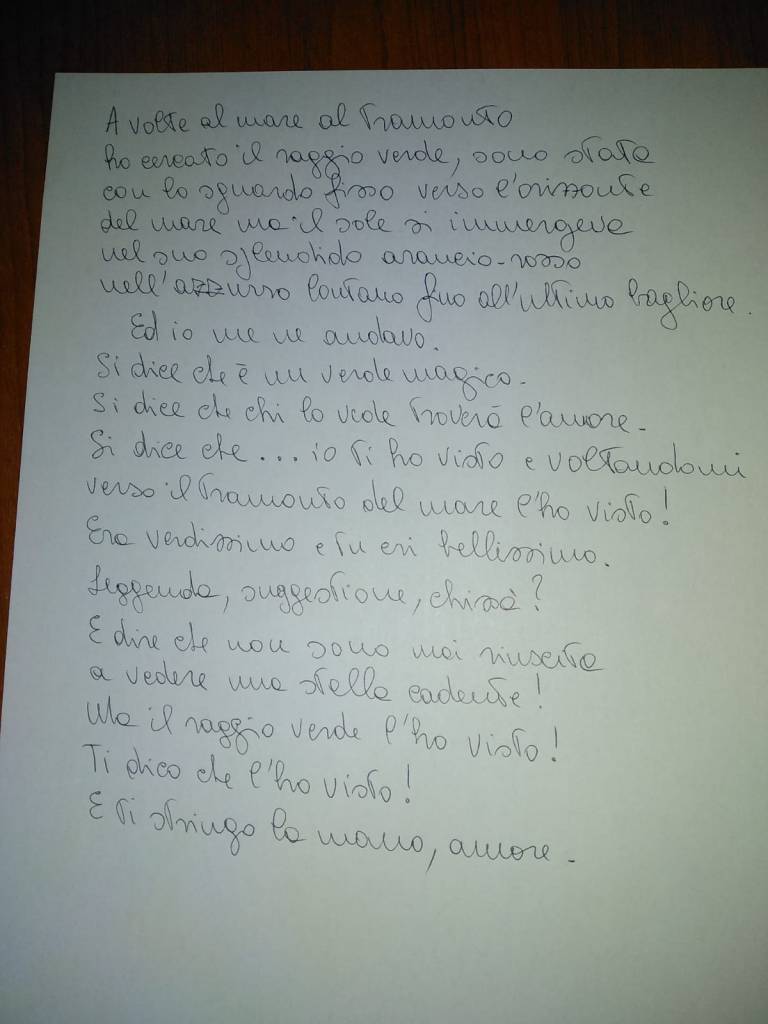 A volte al mare al tramonto
ho cercato il raggio verde, sono stata
con lo sguardo fisso verso l'orizzonte
del mare ma il sole si immergeva
nel suo splendido arancio-rosso
nell'azzurro lontano fino all'ultimo bagliore.
Ed io me ne andavo.
Si dice che è un verde magico.
Si dice che chi lo vede troverà l'amore.
Si dice che ... io ti ho visto e voltandomi
verso il tramonto del mare l'ho visto!
Era verdissimo e tu eri bellissimo.
Leggenda, suggestione, chissà?
E dire che non sono mai riuscita
a vedere una stella cadente!
Ma il raggio verde l'ho visto!
Ti dico che l'ho visto!
E ti stringo la mano, amore.